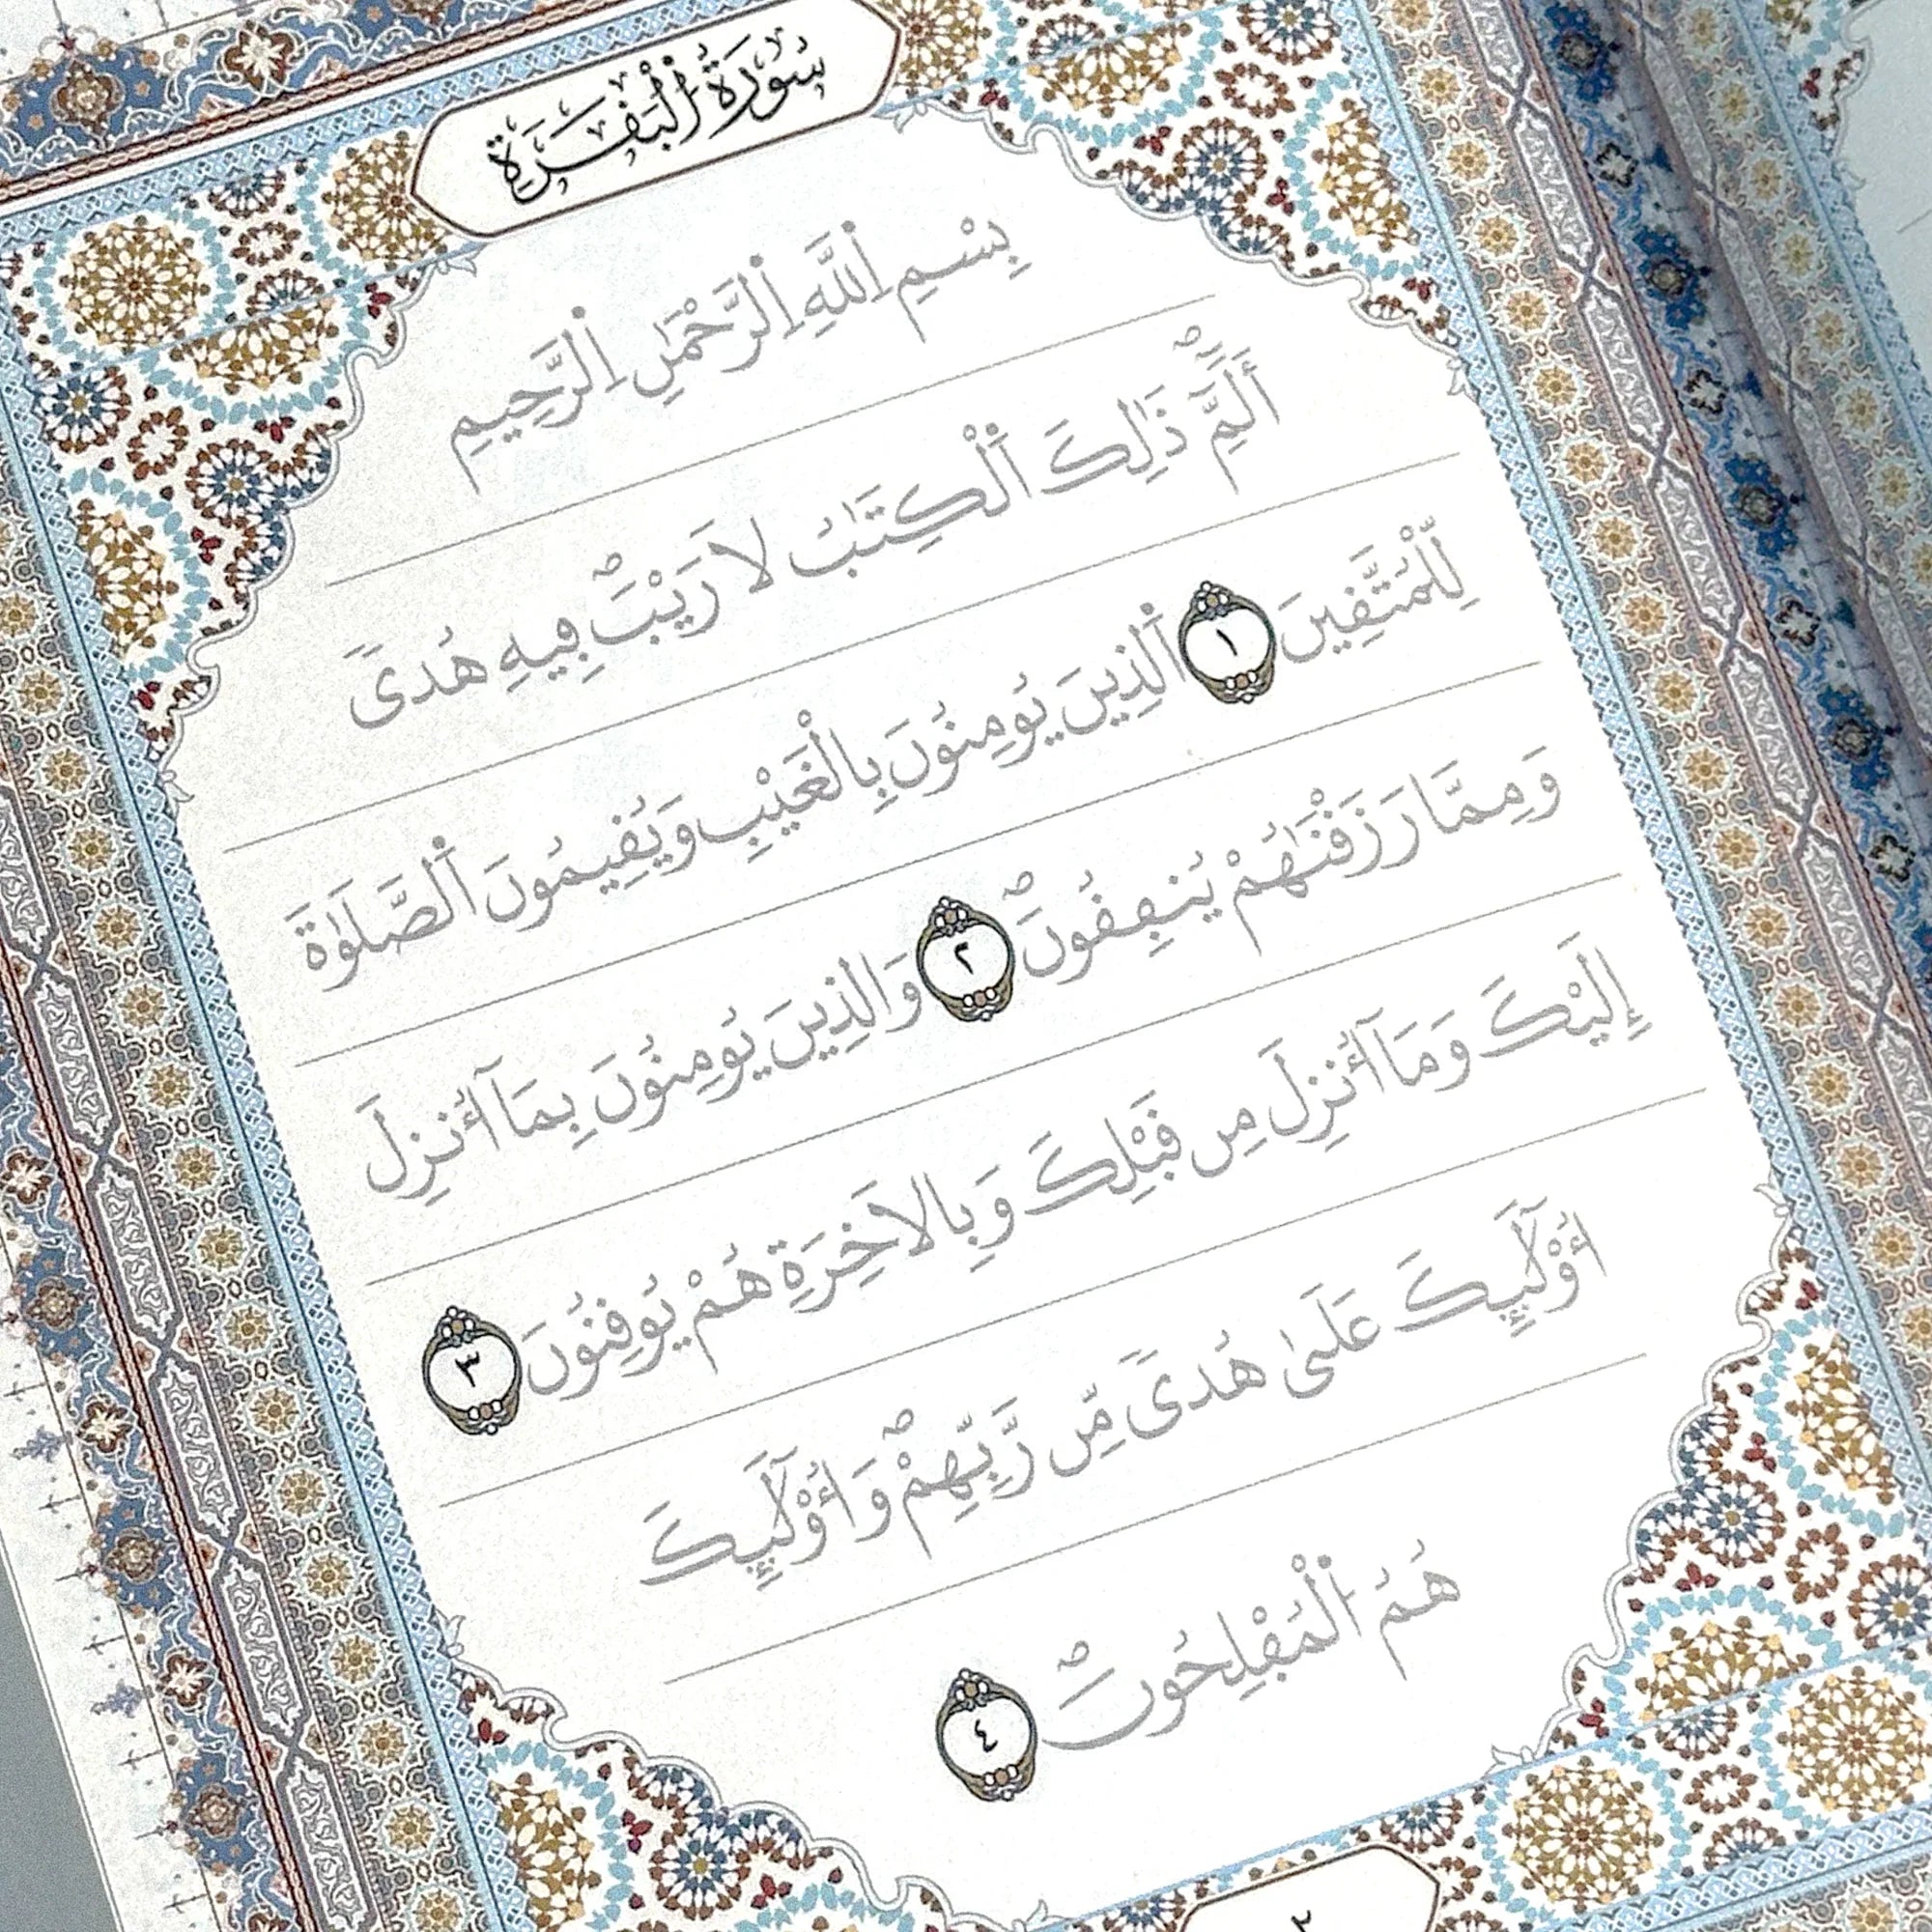 سُورَةُ اُ۬لْبَقَرَةِ
بِسْمِ اِ۬للَّهِ اِ۬لرَّحْمَٰنِ اِ۬لرَّحِيمِ
أَلَٓمِّٓۖ ذَٰلِكَ اَ۬لْكِتَٰبُ لَا رَيْبَۖ فِيهِ هُدىٗ
لِّلْمُتَّقِينَ ١ اَ۬لذِينَ يُومِنُونَ بِالْغَيْبِ وَيُقِيمُونَ اَ۬لصَّلَوٰةَ
وَمِمَّا رَزَقْنَٰهُمْ يُنفِقُونَۖ ٢ وَالذِينَ يُومِنُونَ بِمَآ أُنزِلَ
إِلَيْكَ وَمَآ أُنزِلَ مِن قَبْلِكَ وَبِالَاخِرَةِ هُمْ يُوقِنُونَ ٣
أُوْلَٰٓئِكَ عَلَىٰ هُدىٗ مِّن رَّبِّهِمْۖ وَأُوْلَٰٓئِكَ
هُمُ اُ۬لْمُفْلِحُونَۖ ٤
٢